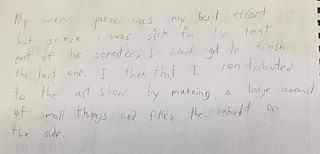 My work piece was my best effort
but scinse i was sick for the last
part of the semester, I didnt get to finish
the last one. I think that I contributed
to the art show by makeing a large amount
of small things and filled the cabinit on
the side.